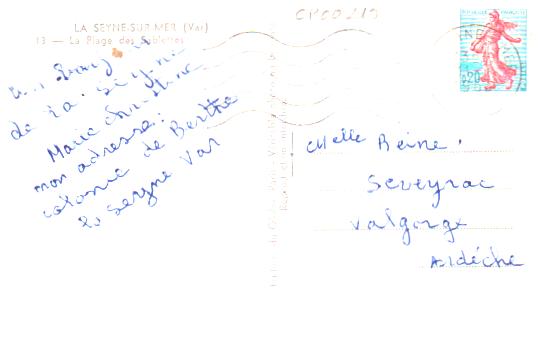 LA SEYNE-SUR-MER (Var)
13 — La Plage des Sablettes
de La Seyne
Marie Christine
mon adresse:
colonie de Berthe
La Seyne Var
CP002213
RÉPUBLIQUE FRANÇAISE
0,20
Melle Reine
Seveyrac
Valgorge
Ardéche